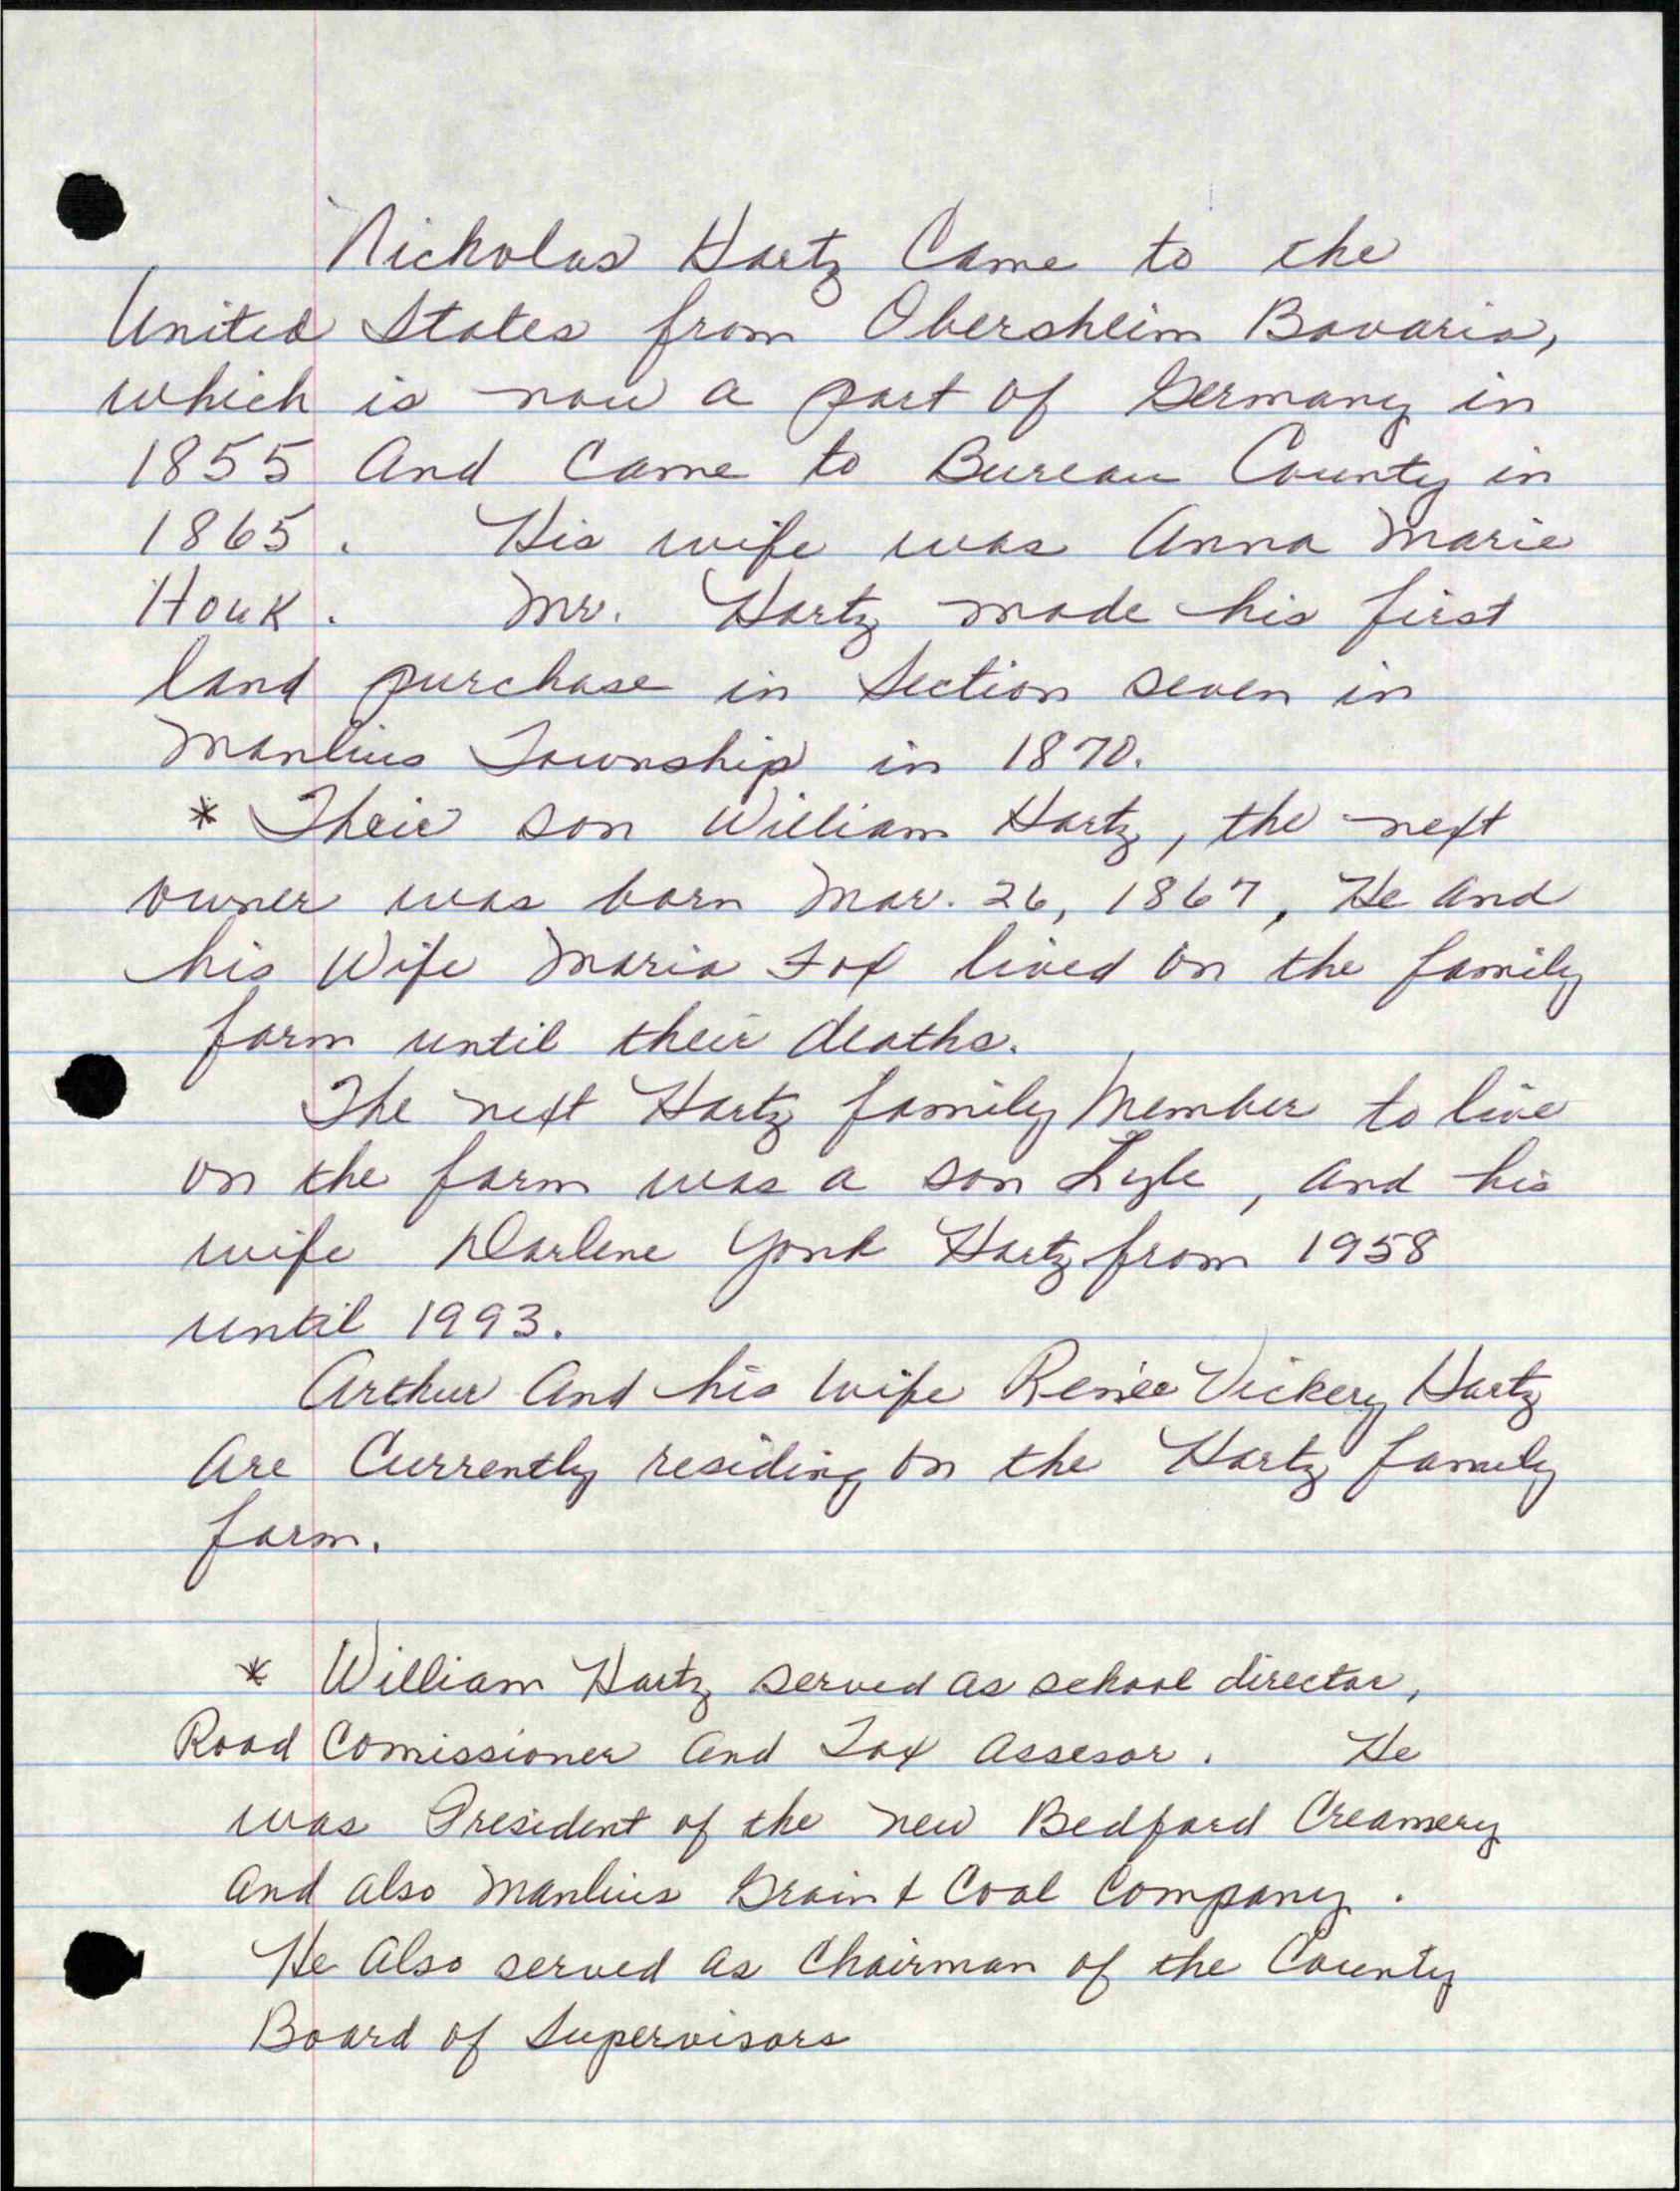 Nicholas Hartz Came to the
United States from Obersheim Bavaria,
which is now a part of Germany in
1855 And Came to Bureau County in
1865. His wife was Anna Marie
Houk. Mr. Hartz made his first
land purchase in Section seven in
Manlius Township in 1870.
* Their son William Hartz, the next
owner was born Mar. 26, 1867, He and
his Wife Maria Fox lived on the family
farm until their deaths.
The next Hartz family Member to live
on the farm was a son Lyle, and his
wife Darlene Yonk Hartz from 1958
until 1993.
Arthur And his wife Renée Vickery Hartz
Are Currently residing on the Hartz family
farm.
* William Hartz served as school director,
Road Comissioner And Tax Assesor. He
was President of the New Bedford Creamery
And also Manlius Grain & Coal Company.
He Also served as Chairman of the County
Board of Supervisors